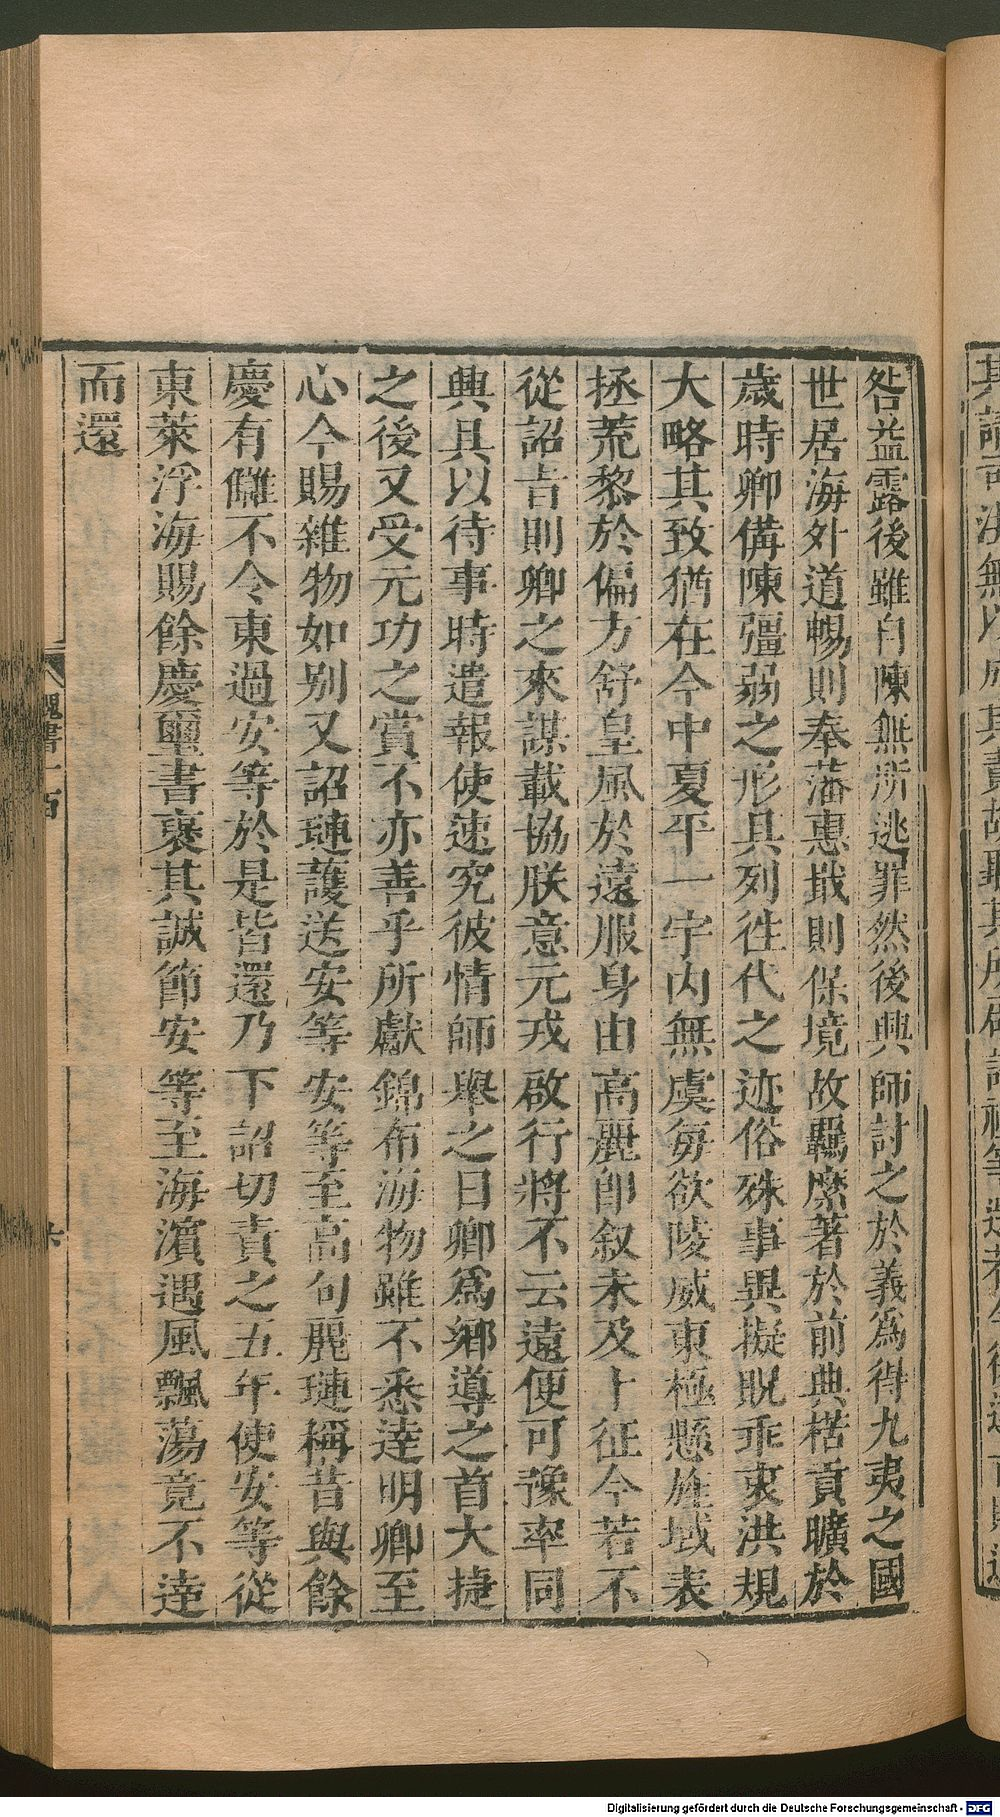 咎益露後雖自陳無所逃罪然後興師討之於義爲得九夷之國
世居海外道暢則奉藩惠戢則保境故羈縻著於前典楛貢曠於
歲時卿備陳彊弱之形具列徃代之迹俗殊事異擬貺乖衷洪規
大略其致猶在今中夏平一宇内無虞每欲陵威東極懸旌域表
拯荒黎於偏方舒皇風於遠服身由高麗即叙未及卜征今若不
從詔旨則卿之來謀載協朕意元戎啟行將不云遠便可豫率同
興具以待事時遣報使速究彼情師舉之日卿爲郷導之首大捷
之後又受元功之賞不亦善乎所獻錦布海物雖不悉達明卿至
心今賜雜物如别又詔璉護送安等安等至高句麗璉稱昔與餘
慶有讎不令東過安等於是皆還乃下詔切責之五年使安等從
東萊浮海賜餘慶璽書褒其誠節安等至海濵遇風飄蕩竟不達
而還
魏書一百
六
Digitalisierung gefördert durch die Deutsche Forschungsgemeinschaft - DFG